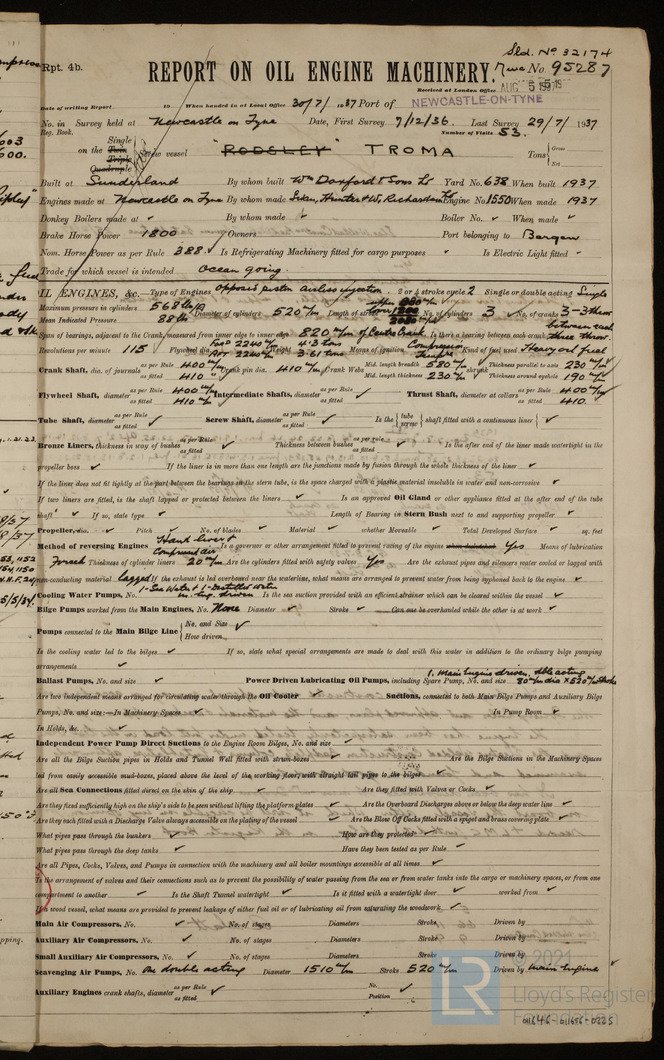 Sld. No 32174
Rpt. 4b.
REPORT ON OIL ENGINE MACHINERY.
No. 95287
Received at London Office AUG 5 1937
Date of writing Report 19 When handed in at Local Office 30/7/1937 Port of NEWCASTLE-ON-TYNE
No. in Reg. Book. Survey held at Newcastle on Tyne Date, First Survey 7/12/36. Last Survey 29/7/1937
Number of Visits 53.
on the Single Twin Triple Quadruple Screw vessel "RODSLEY" TROMA Tons Gross Net
Built at Sunderland By whom built Wm Doxford & Sons Ld Yard No. 638 When built 1937
Engines made at Newcastle on Tyne By whom made Swan, Hunter & W. Richardson Ld Engine No. 1550 When made 1937
Donkey Boilers made at ✓ By whom made ✓ Boiler No. ✓ When made ✓
Brake Horse Power 1800 Owners Port belonging to Bergen
Nom. Horse Power as per Rule 388 Is Refrigerating Machinery fitted for cargo purposes Is Electric Light fitted
Trade for which vessel is intended Ocean going.
OIL ENGINES, &c. Type of Engines Opposed piston airless injection. 2 or 4 stroke cycle 2 Single or double acting Single
Maximum pressure in cylinders 568 lbs Diameter of cylinders 520 m/m Length of stroke No. of cylinders 3 No. of cranks 3-3 throw
Mean Indicated Pressure 88 lbs
Span of bearings, adjacent to the Crank, measured from inner edge to inner edge 820 m/m of Centre Crank. Is there a bearing between each crank between each three throw.
Revolutions per minute 115 Flywheel dia. For'd 2240 m/m Aft 2240 m/m Weight 4.3 tons 3.61 tons Means of ignition Compression Kind of fuel used Heavy oil fuel
Crank Shaft, dia. of journals as per Rule 400 m/m as fitted 410 Crank pin dia. 410 m/m Crank Webs Mid. length breadth 580 m/m Mid. length thickness 230 m/m shrunk Thickness parallel to axis 230 m/m Thickness around eyehole 190 m/m
Flywheel Shaft, diameter as per Rule 400 m/m as fitted 410 m/m Intermediate Shafts, diameter as per Rule as fitted Thrust Shaft, diameter at collars as per Rule 400 m/m as fitted 410.
Tube Shaft, diameter as per Rule as fitted Screw Shaft, diameter as per Rule as fitted Is the tube screw shaft fitted with a continuous liner
Bronze Liners, thickness in way of bushes as per Rule as fitted Thickness between bushes as per rule as fitted Is the after end of the liner made watertight in the
propeller boss ✓ If the liner is in more than one length are the junctions made by fusion through the whole thickness of the liner ✓
If the liner does not fit tightly at the part between the bearings in the stern tube, is the space charged with a plastic material insoluble in water and non-corrosive ✓
If two liners are fitted, is the shaft lapped or protected between the liners ✓ Is an approved Oil Gland or other appliance fitted at the after end of the tube
shaft ✓ If so, state type ✓ Length of Bearing in Stern Bush next to and supporting propeller ✓
Propeller, dia. Pitch ✓ No. of blades ✓ Material ✓ whether Moveable ✓ Total Developed Surface ✓ sq. feet
Method of reversing Engines Hand lever & Compressed air Is a governor or other arrangement fitted to prevent racing of the engine when declutched Yes Means of lubrication
Forced Thickness of cylinder liners 20 m/m Are the cylinders fitted with safety valves Yes Are the exhaust pipes and silencers water cooled or lagged with
non-conducting material lagged If the exhaust is led overboard near the waterline, what means are arranged to prevent water from being syphoned back to the engine ✓
Cooling Water Pumps, No. 1-Sea Water & 1-Distilled water M. Eng. driven Is the sea suction provided with an efficient strainer which can be cleared within the vessel ✓
Bilge Pumps worked from the Main Engines, No. None Diameter ✓ Stroke ✓ Can one be overhauled while the other is at work ✓
Pumps connected to the Main Bilge Line No. and Size ✓ How driven
Is the cooling water led to the bilges ✓ If so, state what special arrangements are made to deal with this water in addition to the ordinary bilge pumping
arrangements ✓
Ballast Pumps, No. and size ✓ Power Driven Lubricating Oil Pumps, including Spare Pump, No. and size 1, Main Engine driven, dble acting 80 m/m dia x 520 m/m stroke
Are two independent means arranged for circulating water through the Oil Cooler ✓ Suctions, connected to both Main Bilge Pumps and Auxiliary Bilge
Pumps, No. and size:—In Machinery Spaces ✓ In Pump Room ✓
In Holds, &c. ✓
Independent Power Pump Direct Suctions to the Engine Room Bilges, No. and size ✓
Are all the Bilge Suction pipes in Holds and Tunnel Well fitted with strum-boxes Are the Bilge Suctions in the Machinery Spaces
led from easily accessible mud-boxes, placed above the level of the working floor, with straight tail pipes to the bilges ✓
Are all Sea Connections fitted direct on the skin of the ship Are they fitted with Valves or Cocks ✓
Are they fixed sufficiently high on the ship's side to be seen without lifting the platform plates ✓ Are the Overboard Discharges above or below the deep water line ✓
Are they each fitted with a Discharge Valve always accessible on the plating of the vessel ✓ Are the Blow Off Cocks fitted with a spigot and brass covering plate ✓
What pipes pass through the bunkers ✓ How are they protected ✓
What pipes pass through the deep tanks ✓ Have they been tested as per Rule ✓
Are all Pipes, Cocks, Valves, and Pumps in connection with the machinery and all boiler mountings accessible at all times ✓
Is the arrangement of valves and their connections such as to prevent the possibility of water passing from the sea or from water tanks into the cargo or machinery spaces, or from one
compartment to another ✓ Is the Shaft Tunnel watertight ✓ Is it fitted with a watertight door ✓ worked from ✓
If a wood vessel, what means are provided to prevent leakage of either fuel oil or of lubricating oil from saturating the woodwork ✓
Main Air Compressors, No. ✓ No. of stages Diameters Stroke Driven by
Auxiliary Air Compressors, No. ✓ No. of stages Diameters Stroke Driven by
Small Auxiliary Air Compressors, No. ✓ No. of stages Diameters Stroke Driven by
Scavenging Air Pumps, No. One double acting Diameter 1510 m/m Stroke 520 m/m Driven by Main Engine
Auxiliary Engines crank shafts, diameter as per Rule as fitted ✓ No. Position
LR © 2021 Lloyd's Register Foundation
011646-011656-0225